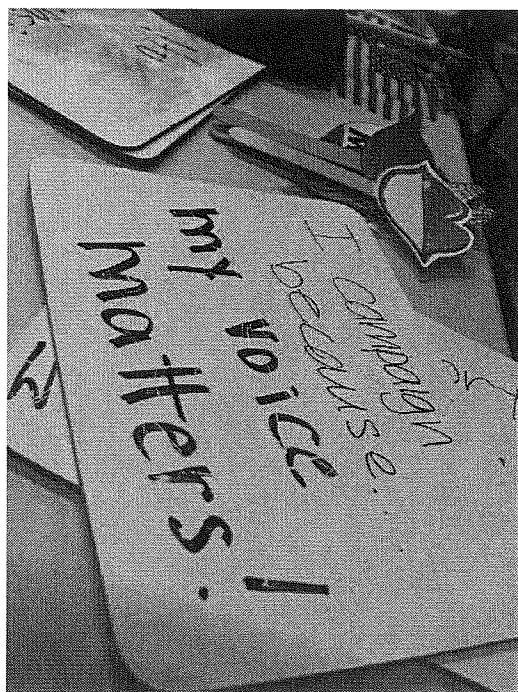 I campaign
because...
my voice
matters.!